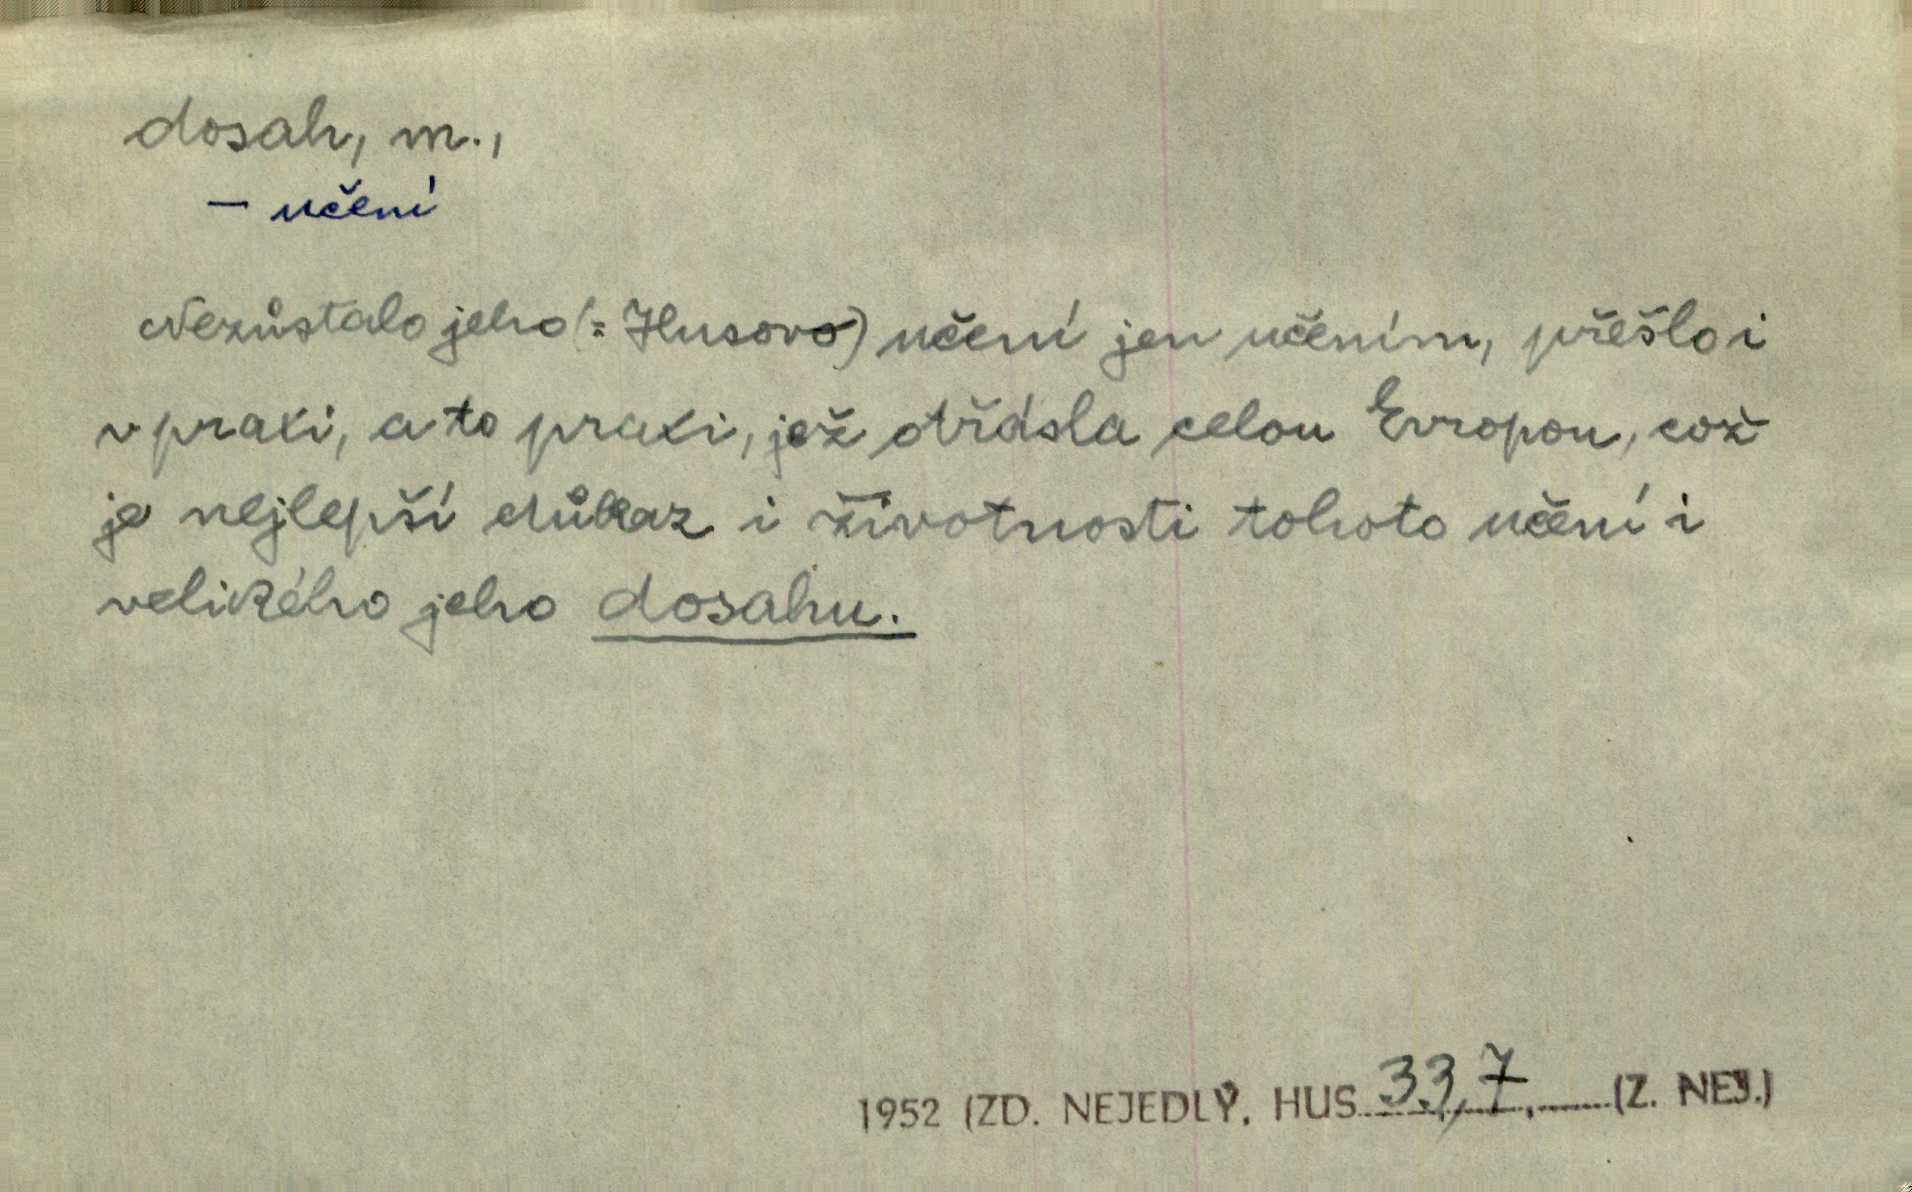 dosah, m.,
– učení
Nezůstalo jeho (= Husovo) učení jen učením, přešlo i
v praxi, a to praxi, jež otřásla celou Evropou, což
je nejlepší důkaz i životnosti tohoto učení i
velikého jeho dosahu.
1952 (ZD. NEJEDLÝ, HUS 33,7, (Z. NEJ.)